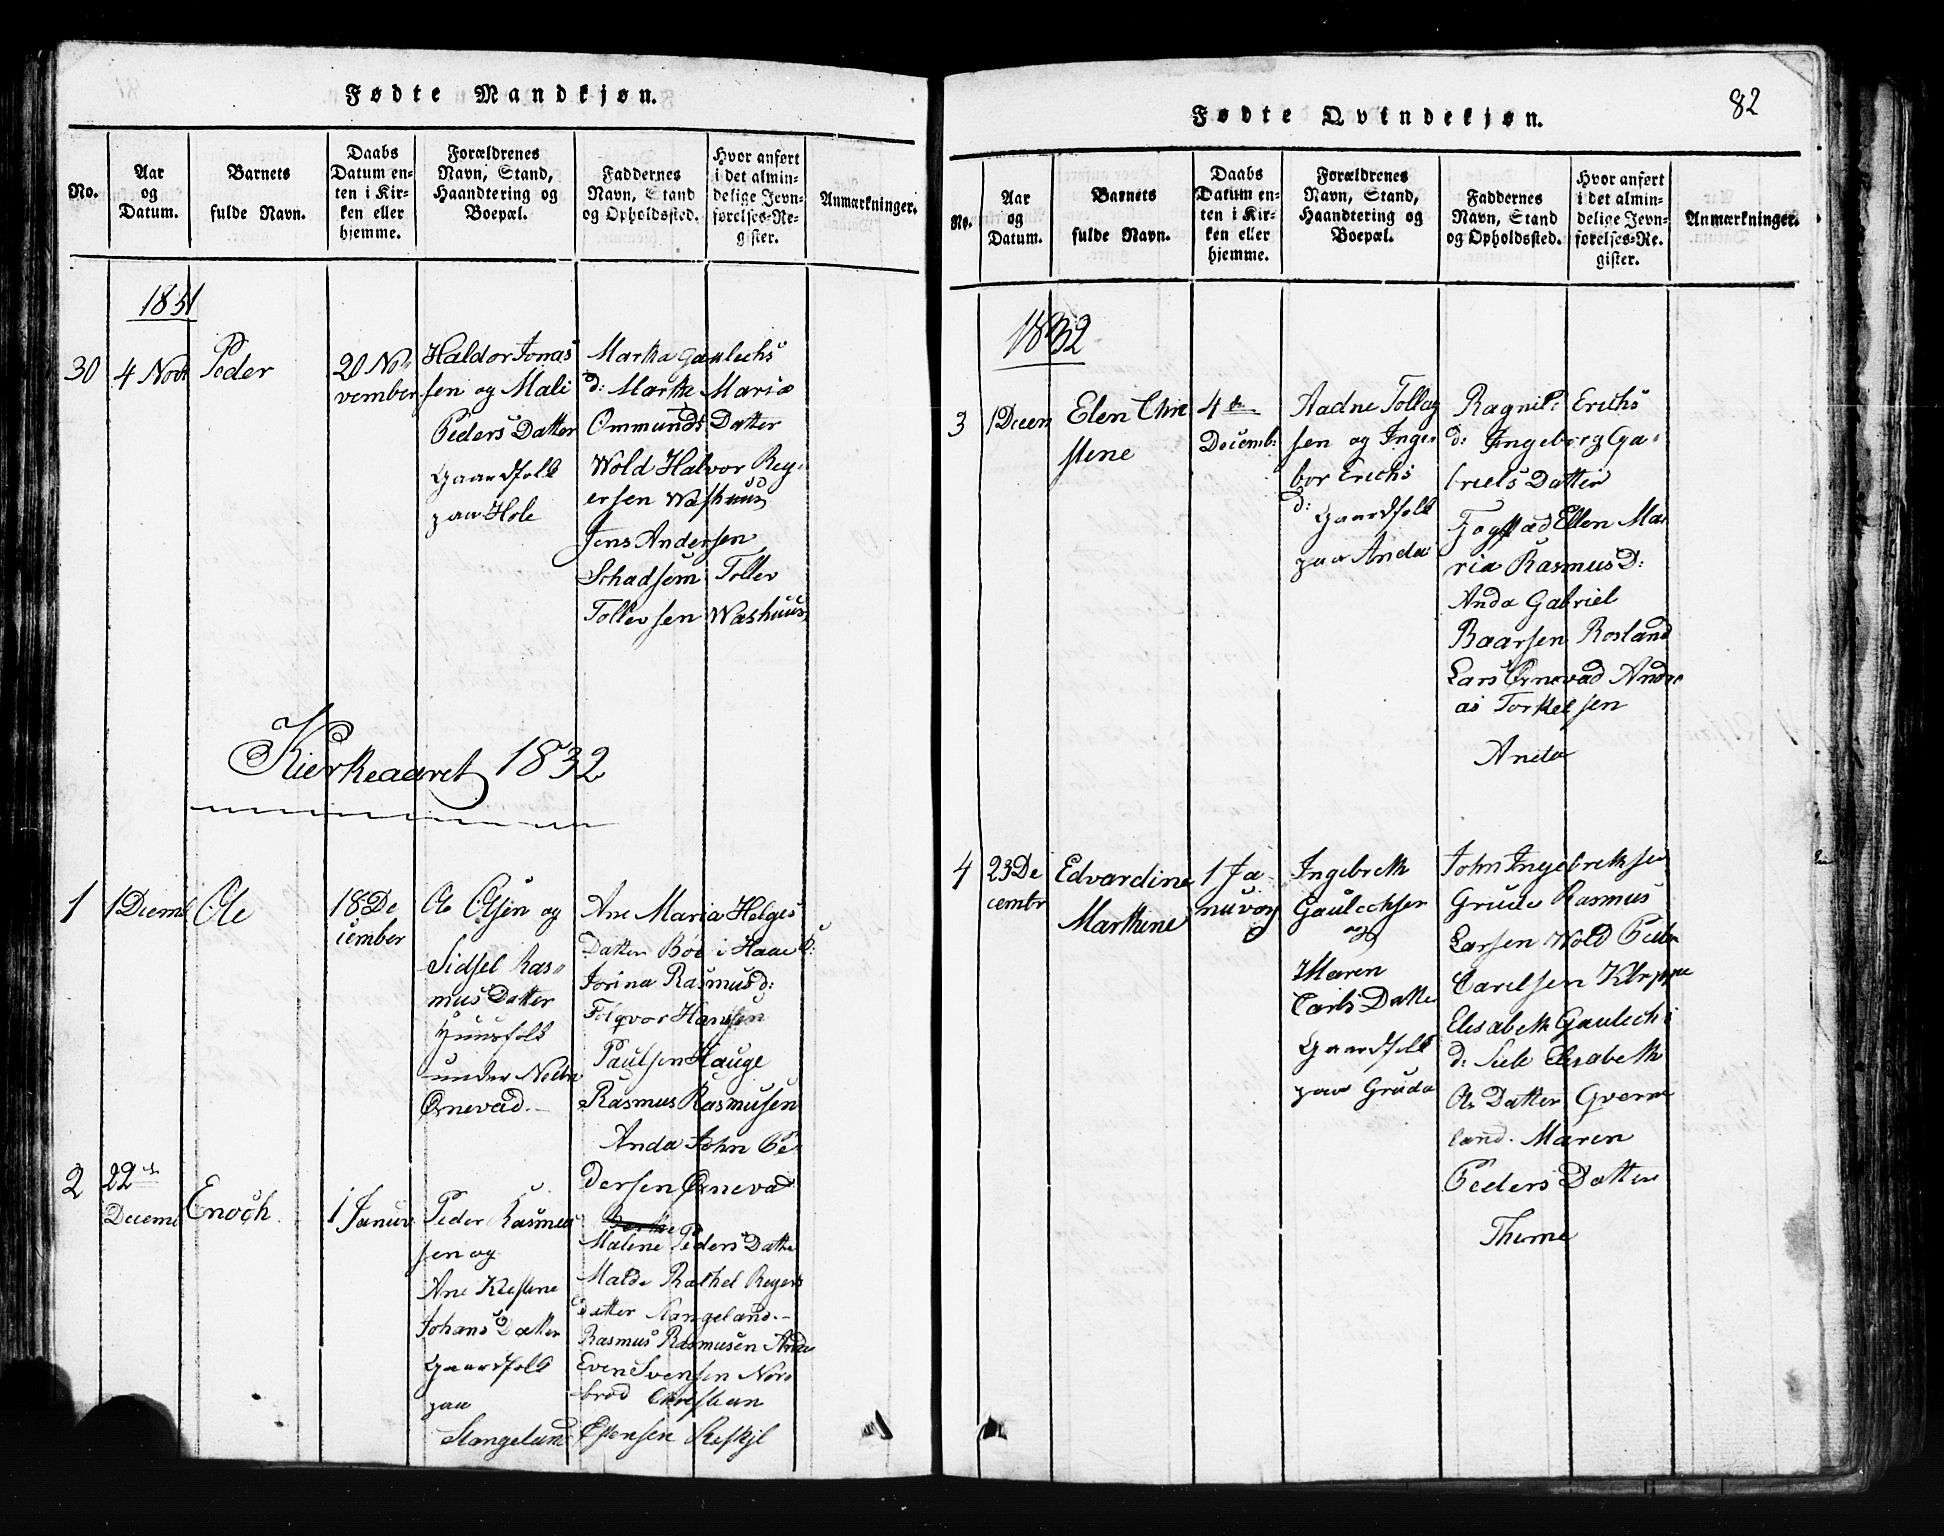 Fødte Mandkjøn.
No.
Aar
og
Datum.
Barnets
fulde Navn.
Daabs
Datum en-
ten i Kir-
ken eller
hjemme.
Forældrenes
Navn, Stand,
Haandtering og
Boepæl.
Faddernes
Navn, Stand
og Opholdssted.
Hvor anført
i det almin-
delige Jevn-
førelses-Re-
gister.
Anmærkninger.
1831
30
4 Novr
Peder
20 No-
vember
Haldor Jonas
sen og Mali
Peders Datter
Gaardfolk
paa Hole
Martha Gaulechs
d: Marthe Maria
Ommunds Datter
Wold Halvor Rey-
ersen Washuus
Jens Andersen
Schadsem Toller
Tollevsen Washuus
Kierkeaaret 1832
1
1 Decemb
Ole
18 De
cember
Ole Olsen og
Sidsel Ras-
mus Datter
Huusfolk
under Nedre
Ørnevad.-
Ane Maria Helges
Datter Böe i Haae
Jorina Rasmusd:
Folqvor Hansen
Paulsen Hauge
Rasmus Rasmusen
Anda John Pe-
dersen Ørnevad
2
22
Decemb
Enoch.
1 Januar
Peder Rasmus
sen og
Ane Kirstene
Johans Datter
Gaardfolk
paa
Stangeland
Malene Peders Datte
Malde Rachel Reyers
datter Stangeland.-
Rasmus Rasmusen Anda
Even Svensen Nord
brod Christian
Estensen Skeskjl
82
Fødte Qvindekjøn.
No.
Aar
og
Datum.
Barnets
fulde Navn.
Daabs
Datum en-
ten i Kir-
ken eller
hjemme.
Forældrenes
Navn, Stand,
Haandtering og
Boepæl.
Faddernes
Navn, Stand
og Opholdssted.
Hvor anført
i det almin-
delige Jevn-
førelses-Re-
gister.
Anmærkninger.
1832
3
1 Decem
Elen Chri
stene
4de
Decemb:
Aadne Tollag
sen og Inge-
bor Erichs
d:
Gaardfolk
paa Anda
Ragnild Erichs
d: Ingeborg Ga-
briels Datter
Fogstad Ellen Ma
ria RasmusD:
Anda Gabriel
Baarsen Rosland
Lars Ørnevad Andre
as Torkelsen
Anda
4
23 De
cembr
Edvardine
Marthine
1 Ja
nuvarj
Ingebreth
Gaulechsen
og
Maren
Carls Datte
Gaardfolk
paa Gruda
John Ingebrethsen
Grude Rasmus
Larsen Wold Peder
Carelsen Kleppe
Elisabeth Gaulechs
d: Sile Elisabeth
Ols Datter Qverne
land. Maren
Peders Datter
Thime